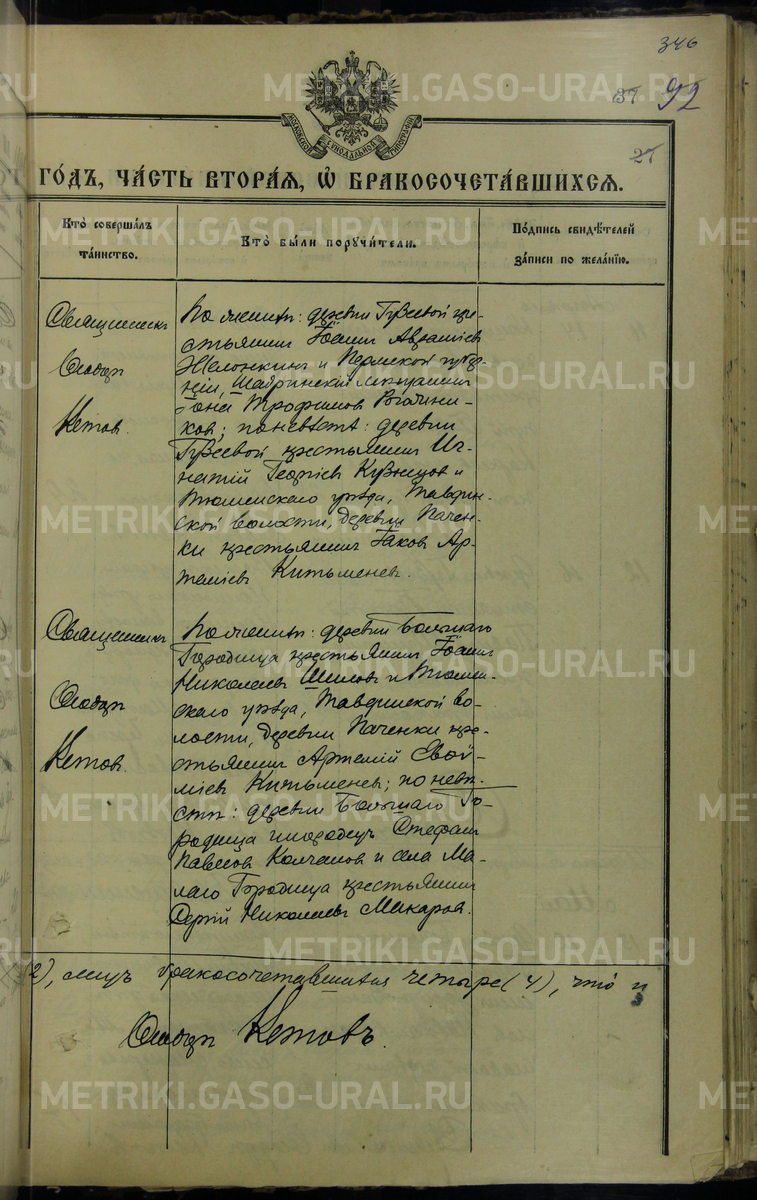 346
37 92
27
МОСКОВСКОЙ СѴНОДАЛЬНОЙ ТИПОГРАФІИ
ГО́ДЪ, ЧА́СТЬ ВТОРА́Я, Ѡ БРАКОСОЧЕТА́ВШИХСЯ.
Кто̀ соверша́лъ та́инство.
Кто̀ бы́ли поручи́тели.
По́дпись свидѣ́телей за́писи по жела́нію.
Священникъ
Ѳеодоръ
Кетовъ.
По женихѣ: деревни Гузеевой кре-
стьянинъ Іоаннъ Авраміевъ
Желонкинъ и Пермской губер-
ніи, Шадринскій мѣщанинъ
Іона Трофимовъ Рогачни-
ковъ; по невѣстѣ: деревни
Гузеевой крестьянинъ Иг-
натій Георгіевъ Кузнецовъ и
Тюменскаго уѣзда, Тавдин-
ской волости, деревни Паченки
ки крестьянинъ Іаковъ Ар-
теміевъ Китьменевъ.
Священникъ
Ѳеодоръ
Кетовъ.
По женихѣ: деревни Большаго
Городища крестьянинъ Іоаннъ
Николаевъ Шиловъ и Тюмен-
скаго уѣзда, Тавдинской во-
лости, деревни Паченки кре-
стьянинъ Артемій
Китьменевъ; по невѣ-
стѣ: деревни Большаго Го-
родища инородецъ Стефанъ
Павловъ Колчановъ и села Ма-
лаго Городища крестьянинъ
Сергій Николаевъ Макаровъ.
(2), лицъ бракосочетавшихся четыре (4), что и
Ѳеодоръ Кетовъ.
METRIKI.GASO-URAL.RU